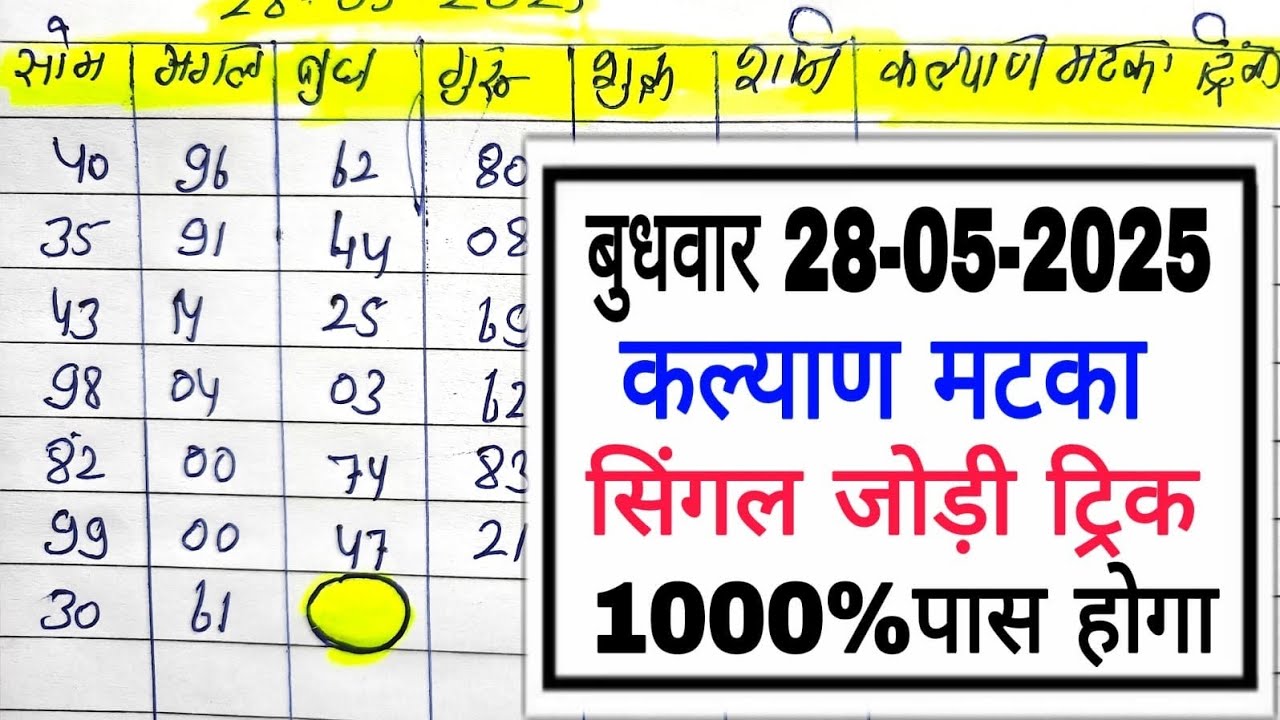 28-05-2025
सोम मंगल बुध गुरु शुक्र शनि कल्याण मटका ट्रिक
40 96 62 80
35 91 44 08
43 14 25
98 04 03 62
82 00 74 83
99 00 47 21
30 61
बुधवार 28-05-2025
कल्याण मटका
सिंगल जोड़ी ट्रिक
1000%पास होगा